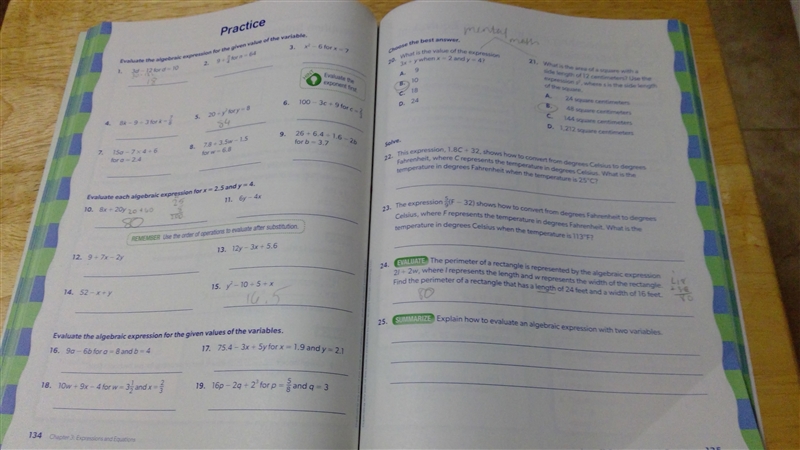 Practice
Evaluate the algebraic expression for the given value of the variable.
1.
2.
3. x² − 6 for x = 7
18
Evaluate the
exponent first.
4.
5. 20 − y² for y = 8
84
6. 100 − 3c + 9 for c =
7. 15a − 7 + 4 ÷ 6
for a = 2.4
8. 7.8 + 3.5w − 1.5
for w = 6.8
9.
for b = 3.7
Evaluate each algebraic expression for x = 2.5 and y = 4.
10. 8x + 20y
80
11. 6y − 4x
REMEMBER Use the order of operations to evaluate after substitution.
12. 9 + 7x − 2y
13. 12y − 3x + 5.6
14. 52 − x + y
15. y² − 10 ÷ 5 + x
16.5
Evaluate the algebraic expression for the given values of the variables.
16. 9a − 6b for a = 8 and b = 4
17. 75.4 − 3x + 5y for x = 1.9 and y = 2.1
18. 10w + 9x − 4 for w = 3½ and x = ⅔
19. 16p − 2q + 2³ for p = ⅝ and q = 3
134 Chapter 3: Expressions and Equations
mental
math
Choose the best answer.
20. What is the value of the expression
when x = 2 and y = 4?
A. 9
B. 10
C. 18
D. 24
21. What is the area of a square with a
side length of 12 centimeters? Use the
expression s², where s is the side length
of the square.
A. 24 square centimeters
B. 48 square centimeters
C. 144 square centimeters
D. 1,212 square centimeters
Solve.
22. This expression, 1.8C + 32, shows how to convert from degrees Celsius to degrees
Fahrenheit, where C represents the temperature in degrees Celsius. What is the
temperature in degrees Fahrenheit when the temperature is 25°C?
23. The expression 5/9(F − 32) shows how to convert from degrees Fahrenheit to degrees
Celsius, where F represents the temperature in degrees Fahrenheit. What is the
temperature in degrees Celsius when the temperature is 113°F?
24. EVALUATE The perimeter of a rectangle is represented by the algebraic expression
2l + 2w, where l represents the length and w represents the width of the rectangle.
Find the perimeter of a rectangle that has a length of 24 feet and a width of 16 feet.
80
25. SUMMARIZE Explain how to evaluate an algebraic expression with two variables.